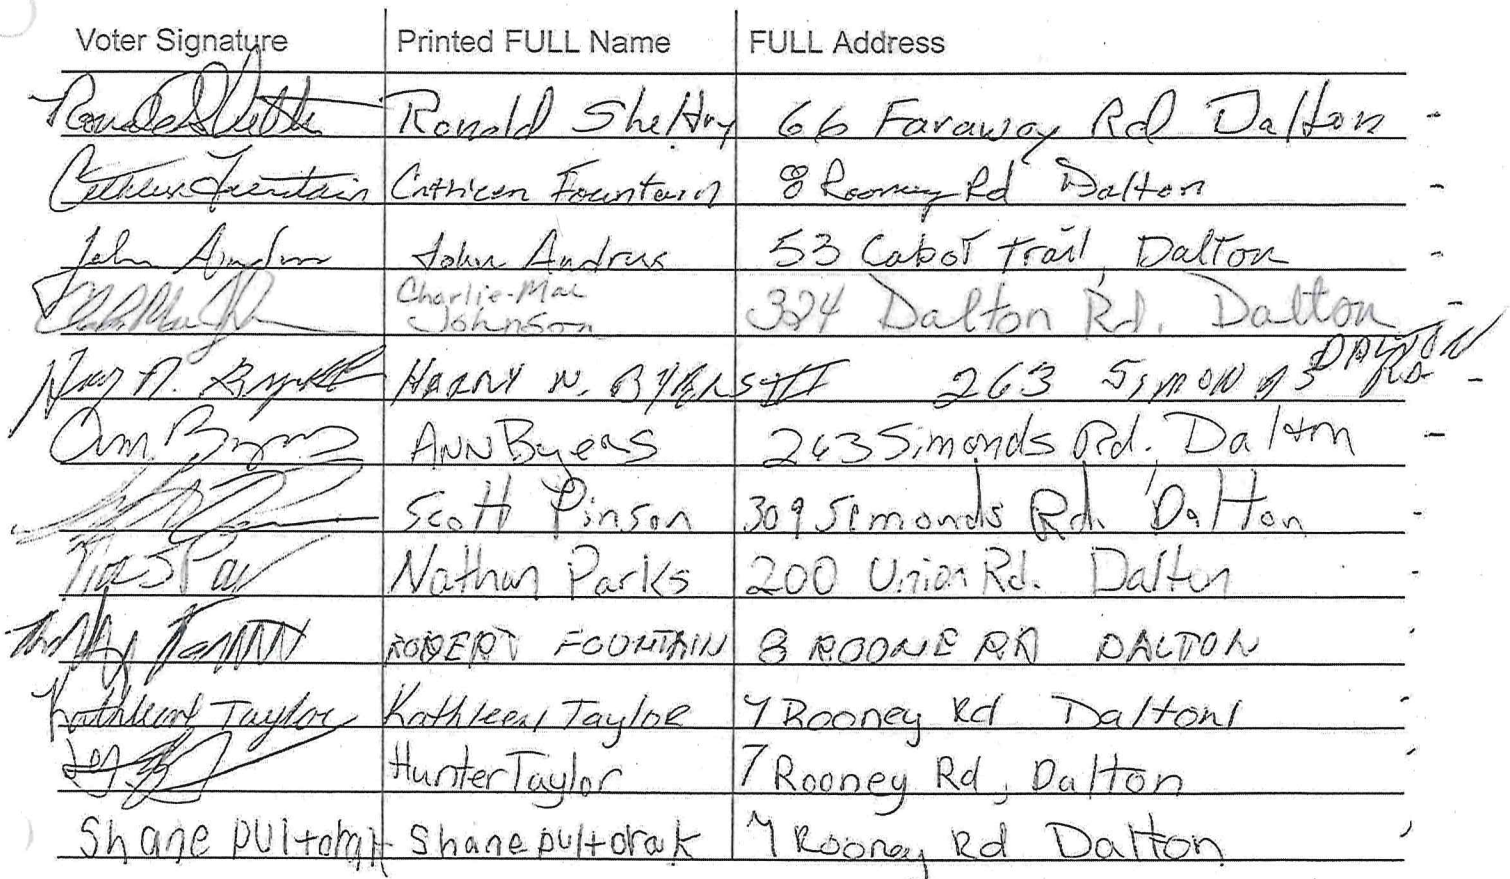 Voter Signature Printed FULL Name FULL Address
Ronald 66 Faraway Rd Dalton
Cathleen Fountain Cathleen Fountain 8 Rooney Rd Dalton
John Andrus John Andrus 53 Cabot Trail, Dalton
Charlie-Mae
Johnson 324 Dalton Rd. Dalton
HARRY N. BYERS III 263 Simonds RD DALTON
Ann Byers ANN Byers 263 Simonds Rd. Dalton
Scott Pinson 309 Simonds Rd. Dalton
Nathan Parks 200 Union Rd. Dalton
ROBERT FOUNTAIN 8 ROONE RD DALTON
Kathleen Taylor Kathleen Taylor 7 Rooney Rd Dalton
Hunter Taylor 7 Rooney Rd, Dalton
Shane pultorak Shane pultorak 7 Rooney Rd Dalton